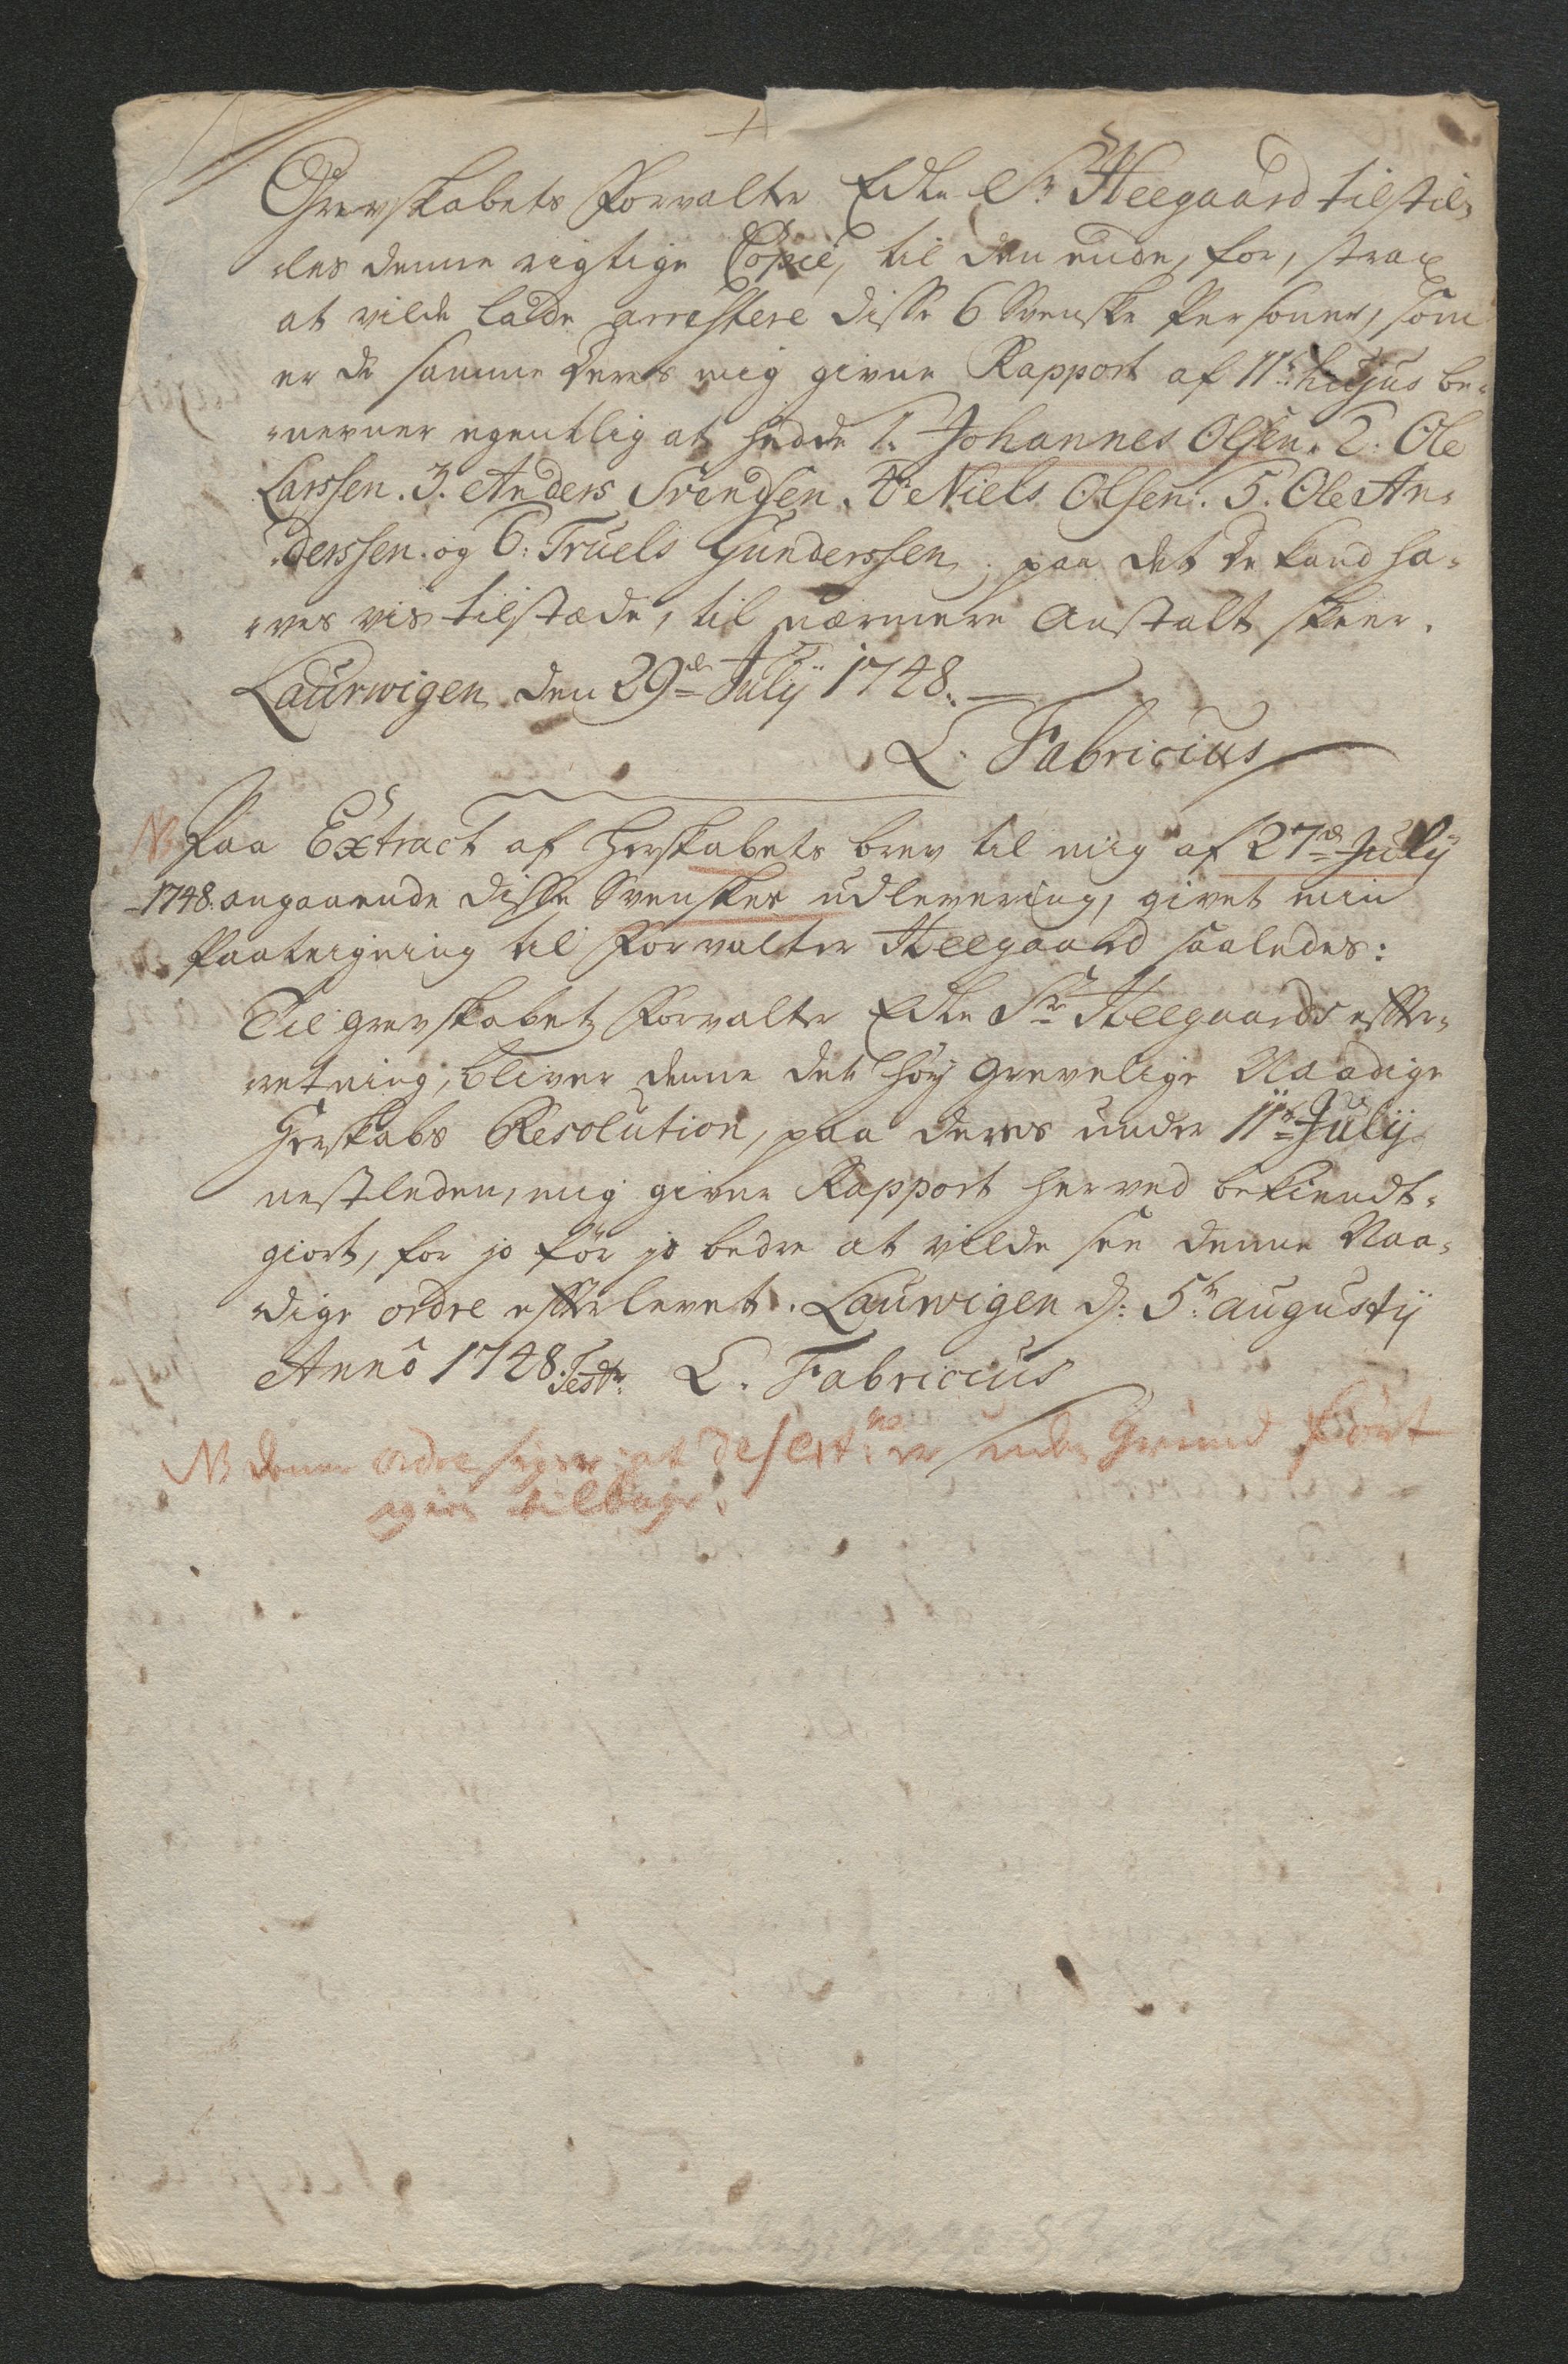 Grevskabets Forvalter Edle Sr Heegaard tilstil,
,les denne rigtige Copie, til den ende, for, strax
at vilde lade arrestere disse 6 Svenske Personer, som
er de samme Deres mig givne Rapport af 11te hujus be,
,nevner egentlig at hedde 1. Johannes Olsen. 2. Ole
Larssen. 3. Anders Svendsen. 4. Niels Olsen. 5. Ole An,
,derssen. og 6: Truels Gunderssen, paa det De kand ha,
,ves vis tilstæde, til nærmere Anstalt skeer.
Laurwigen den 29de Julij 1748.
L. Fabricius
NB Paa Extract af Herskabets brev til mig af 27de Julij
1748. angaaende disse Svenskes udlevering, givet min
Paateigning til Forvalter Heegaard saaledes:
Til grevskabets Forvalter Edle Sr Heegaards efter,
retning, bliver denne det høy Grevelige Naadige
Herskabs Resolution, paa deres under 11te Julij
nestleden, mig givne Rapport herved bekiendt,
giort, for jo før jo bedre at vilde see denne Naa,
dige ordre efterlevet. Laurwigen d: 5te augustij
Anno 1748. Test: L. Fabricius
NB denne ordre siger at desert:ne er uden Grund
tilbage.